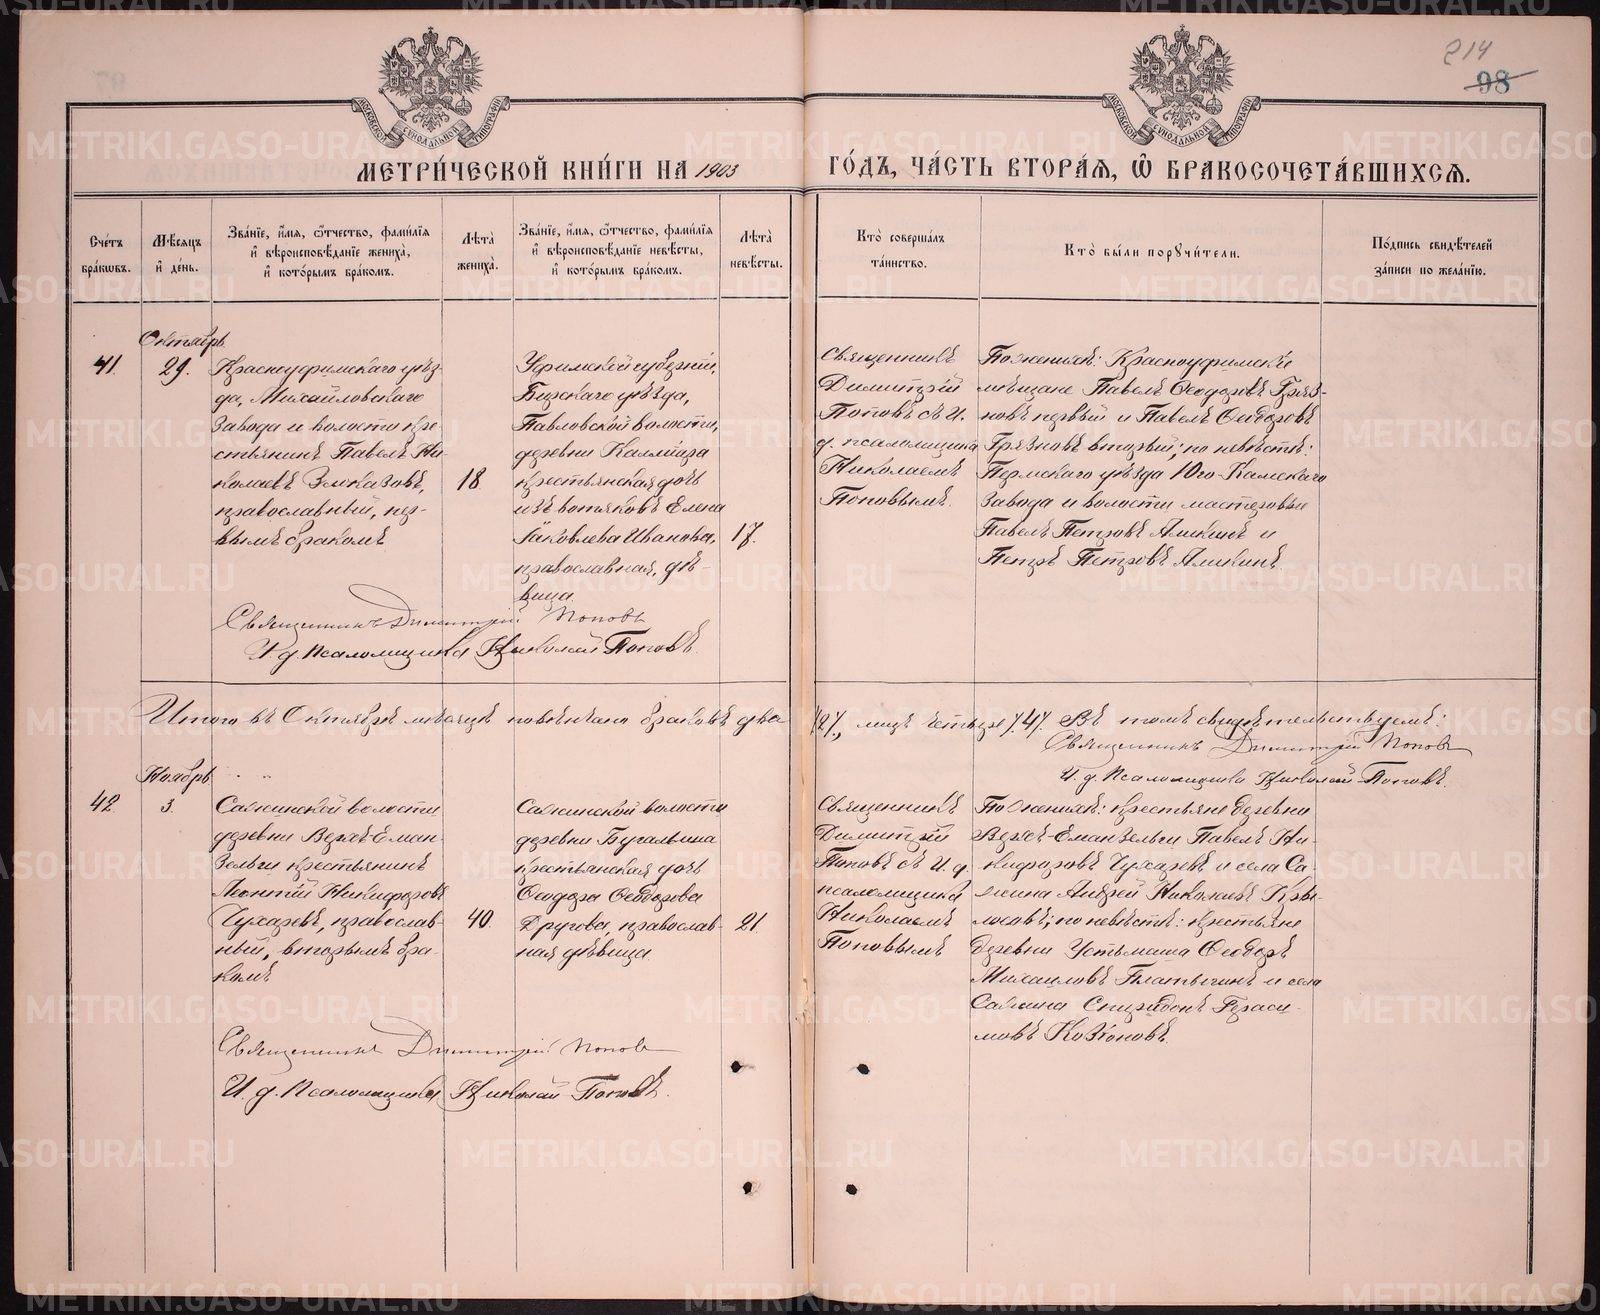 214
98
МОСКОВСКОЙ СУНОДАЛЬНОЙ ТИПОГРАФИИ
МОСКОВСКОЙ СУНОДАЛЬНОЙ ТИПОГРАФИИ
МЕТРИ́ЧЕСКОЙ КНИ́ГИ НА 1903
ГО́ДЪ, ЧА́СТЬ ВТОРА́Ѧ, Ѽ БРАКОСОЧЕТА́ВШИХСѦ.
Сче́тъ
бра́кѡвъ.
Мѣ́сѧцъ
и҆ де́нь.
Зва́нїе, и҆́мѧ, ѻ҆́тчество, фами́лїѧ
и҆ вѣроисповѣ́данїе жениха̀,
и҆ кото́рымъ бра́комъ.
Лѣта̀
жениха̀.
Зва́нїе, и҆́мѧ, ѻ҆́тчество, фами́лїѧ
и҆ вѣроисповѣ́данїе невѣ́сты,
и҆ кото́рымъ бра́комъ.
Лѣта̀
невѣ́сты.
Кто̀ соверша́лъ
та́инство.
Кто̀ бы́ли порꙋчи́тели.
По́дпись свидѣ́телей
за́писи по жела́нїю.
Октябрь
41.
29.
Красноуфимскаго уѣз-
да, Михайловскаго
завода и волости кре-
стьянинъ Павелъ Ни-
колаевъ
православный, пер-
вымъ бракомъ
18.
Уфимской губерніи,
Бирскаго уѣзда,
Павловской волости,
деревни Калміяра
крестьянская дочь
изъ вотяковъ Елена
Іаковлева Иванова,
православная, дѣ-
вица.
17.
Священникъ
Димитрій
Поповъ съ И.
д. псаломщика
Николаемъ
Поповымъ.
По женихѣ: Красноуфимскіе
мѣщане Павелъ Ѳеодоровъ Гряз-
новъ первый и Павелъ Ѳеодоровъ
Грязновъ вторый; по невѣстѣ:
Пермскаго уѣзда Юго-Камскаго
завода и волости мастеровые
Павелъ Петровъ Аликинъ и
Петръ Петровъ Аликинъ.
Священникъ Димитрій Поповъ
И. д. Псаломщика Николай Поповъ.
Итого въ Октябрѣ мѣсяцѣ повѣнчано браковъ два
/2/., лицъ четыре /4/. Въ томъ свидѣтельствуемъ:
Священникъ Димитрій Поповъ
И. д. Псаломщика Николай Поповъ.
Ноябрь
42.
3.
Саянской волости
деревни Верхъ-Еман-
зельги крестьянинъ
Леонтій Никифоровъ
Чухаревъ, православ-
ный, вторымъ бра-
комъ
40.
Саянской волости
деревни Бугалыша
крестьянская дочь
Ѳеодора Ѳеодорова
Другова, православ-
ная дѣвица.
21.
Священникъ
Димитрій
Поповъ съ И. д.
псаломщика
Николаемъ
Поповымъ
По женихѣ: крестьяне деревни
Верхъ-Еманзельги Павелъ Ни-
кифоровъ Чухаревъ и села Са-
Андрей Николаевъ Кры-
ловъ; по невѣстѣ: крестьяне
деревни Усть-маша Ѳеодоръ
Михаиловъ Платыгинъ и села
Спиридонъ Гераси-
мовъ Козіоновъ
Священникъ Димитрій Поповъ
И. д. Псаломщика Николай Поповъ.
METRIKI.GASO-URAL.RU